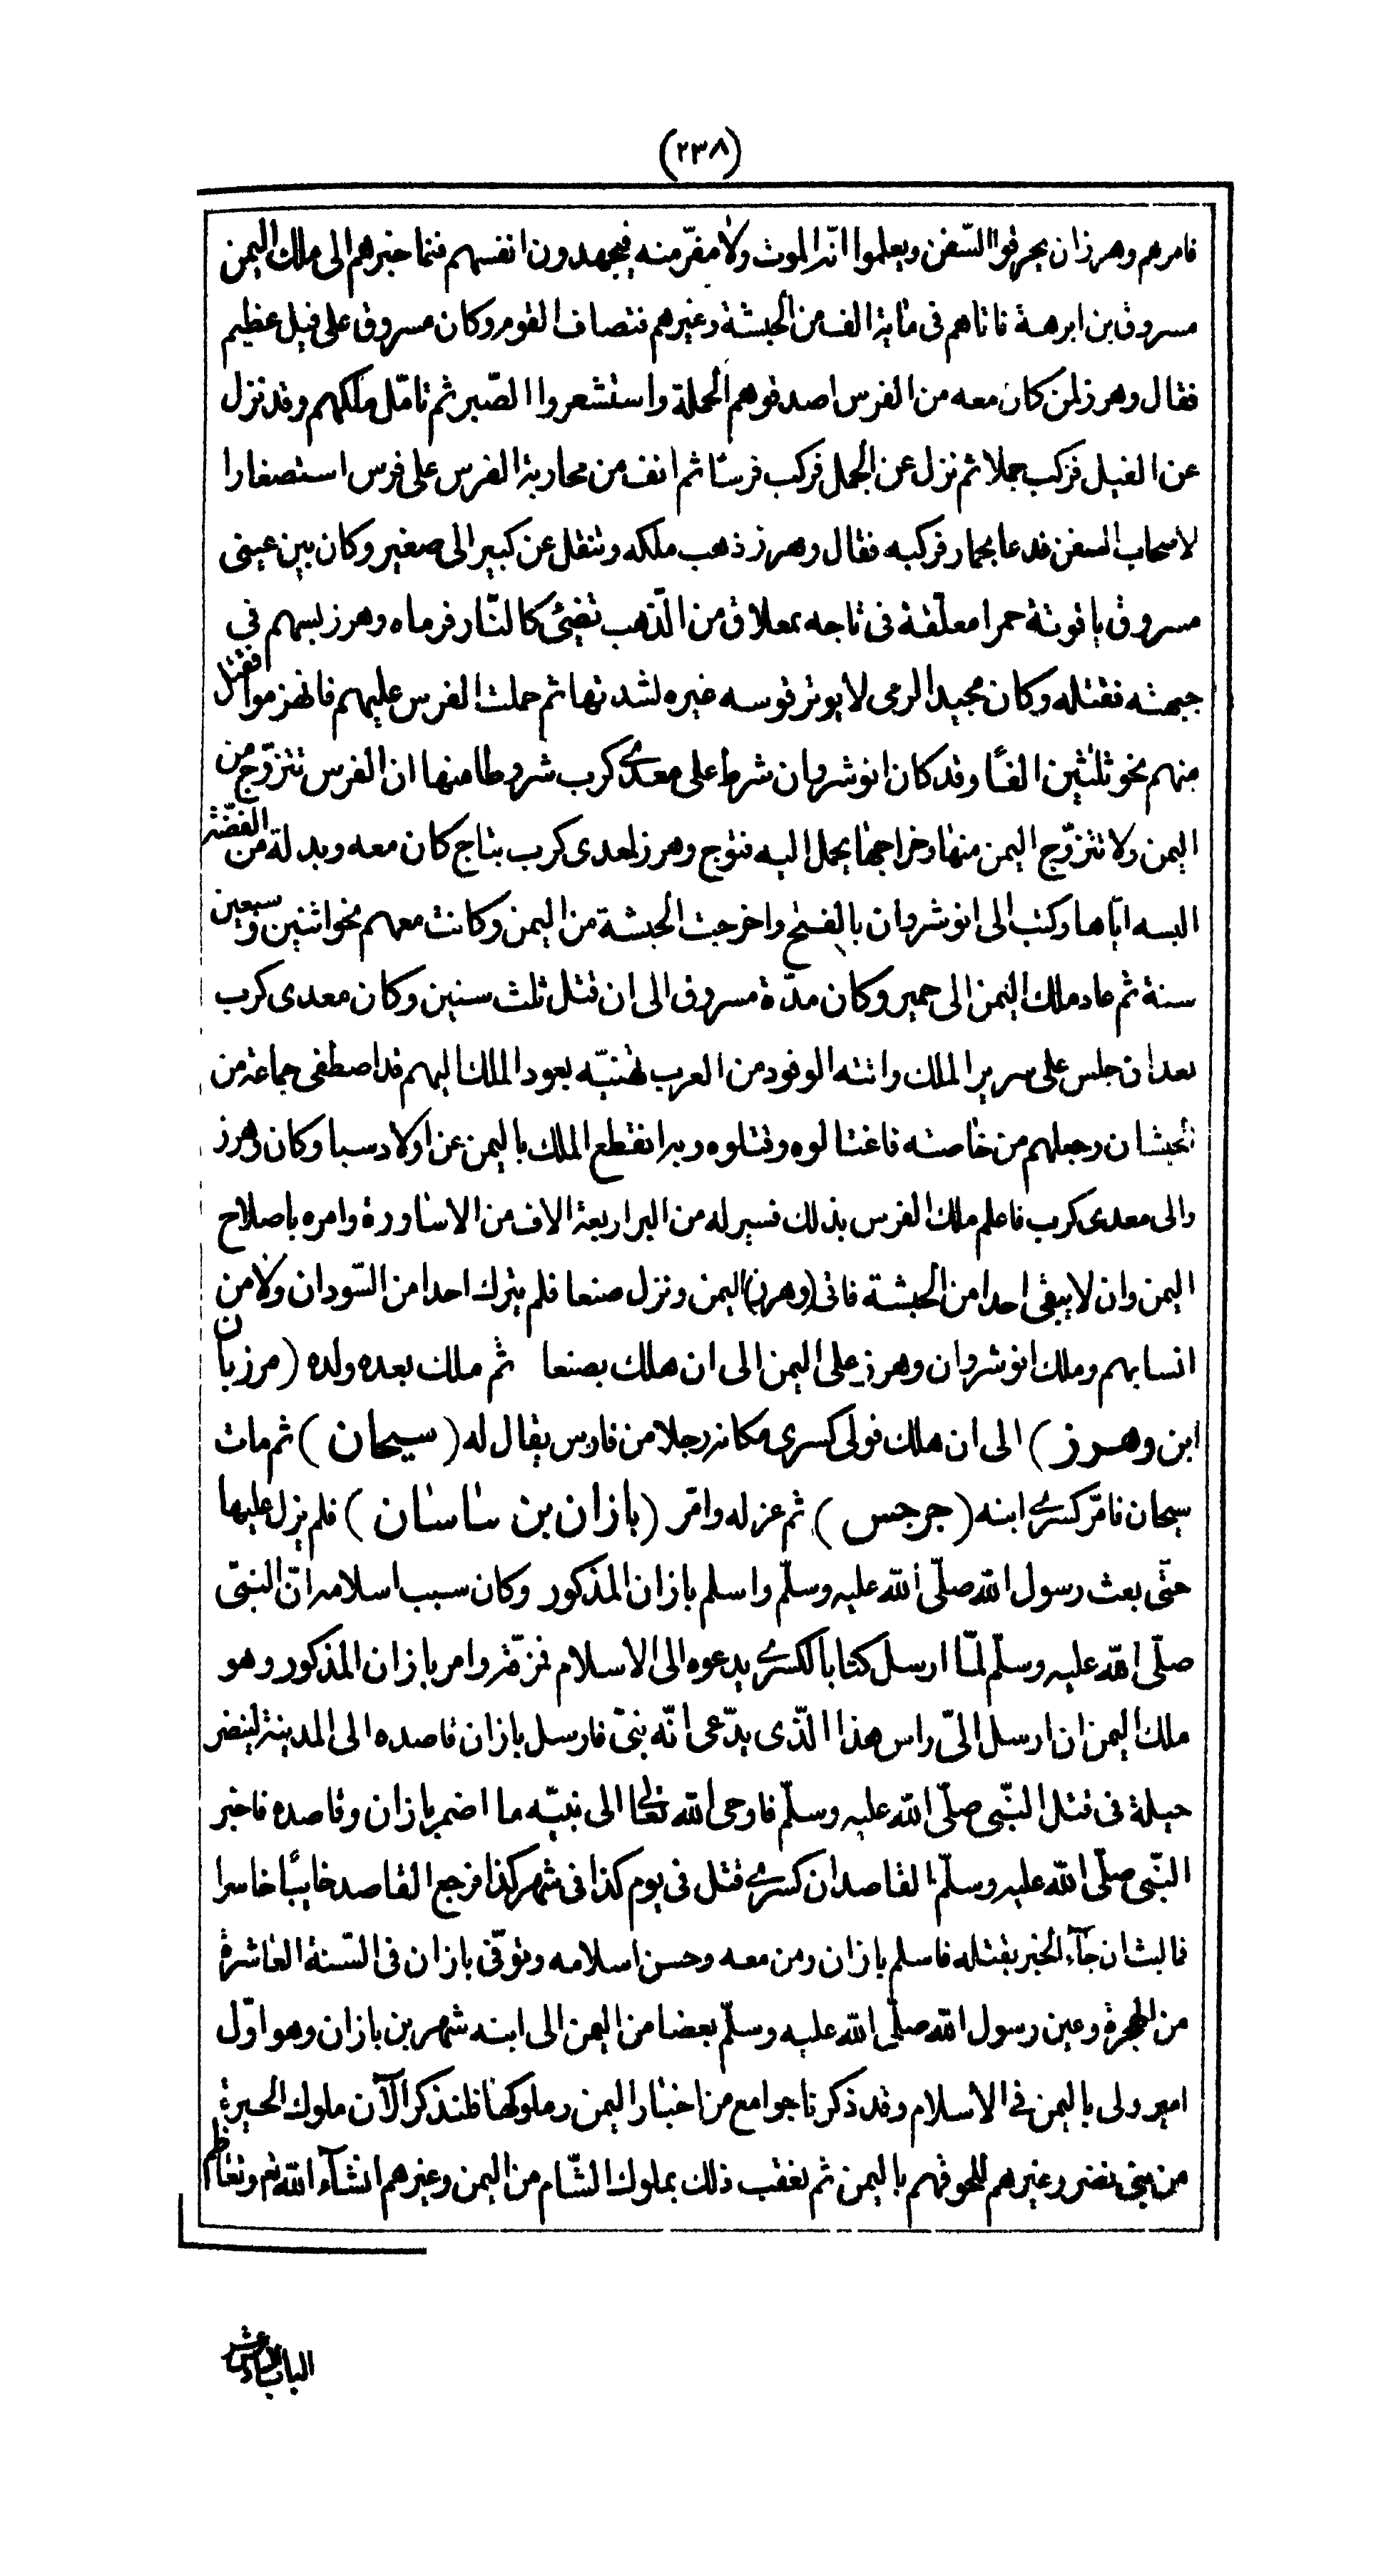 (٢٣٨)
فامرهم وهرز ان يحرقوا السّفن ويعلموا انّه الموت ولا مفرّ منه فيجهدون انفسهم فنما خبرهم الى ملك اليمن
مسروق بن ابرهة فاتاهم فى ماية الف من الحبشة وغيرهم فتصاف القوم وكان مسروق على فيل عظيم
فقال وهرز لمن كان معه من الفرس اصدقوهم الحملة واستشعروا الصّبر ثم تامّل ملكهم وقد نزل
عن الفيل فركب جملا ثم نزل عن الجمل فركب فرسا ثم انف من محاربة الفرس على فرس استصغارا
لاصحاب السفن فدعا بحمار فركبه فقال وهرز ذهب ملكه وتنقل عن كبير الى صغير وكان بين عينى
مسروق ياقوتة حمرا معلّقة فى تاجه بمعلاق من الذّهب تضيئ كالنّار فرماه وهرز بسهم فى
جبهته فقتله وكان مجيد الرمى لا يوتر قوسه غيره لشدتها ثم حملت الفرس عليهم فانهزموا فقتل
منهم نحو ثلثين الفًا وقد كان انوشروان شرط على معدى كرب شروطا منها ان الفرس تتزوّج من
اليمن ولا تتزوّج اليمن منها وخراجها يحمل اليه فتوج وهرز لمعدى كرب بتاج كان معه وبدلة من الفضّة
البسه ايّاها وكتب الى انوشروان بالفتح واخرجت الحبشة من اليمن وكانت معهم نحو اثنين وسبعين
سنة ثم عاد ملك اليمن الى حمير وكان مدّة مسروق الى ان قتل ثلث سنين وكان معدى كرب
بعد ان جلس على سرير الملك واتته الوفود من العرب تهنيّه بعود الملك اليهم قد اصطفى جماعة من
الحبشان وجعلهم من خاصته فاغتالوه وقتلوه وبه انقطع الملك باليمن عن اولاد سبا وكان وهرز
والى معدى كرب فاعلم ملك الفرس بذلك فسير له من البر اربعة الاف من الاساورة وامره باصلاح
اليمن وان لا يبقى احدا من الحبشة فاتى (وهرز) اليمن ونزل صنعا فلم يترك احدا من السّودان ولا من
انسابهم وملك انوشروان وهرز على اليمن الى ان هلك بصنعا ثم ملك بعده ولده (مرزبان
ابن وهرز) الى ان هلك فولى كسرى مكانه رجلا من فارس يقال له (سيحان) ثم مات
سيحان فامّر كسرى ابنه (جرجس) ثم عزله وامّر (بازان بن ساسان) فلم يزل عليها
حتّى بعث رسول الله صلّى الله عليه وسلّم واسلم بازان المذكور وكان سبب اسلامه انّ النبىّ
صلّى الله عليه وسلّم لمّا ارسل كتابا لكسرى يدعوه الى الاسلام فمزّقه وامر بازان المذكور وهو
ملك اليمن ان ارسل الىّ راس هذا الّذى يدّعى انّه نبىّ فارسل بازان قاصده الى المدينة لينضر
حيلة فى قتل النّبى صلّى الله عليه وسلّم فاوحى الله تعالى الى نبيّه ما اضمر بازان وقاصده فاخبر
النّبى صلّى الله عليه وسلّم القاصد ان كسرى قتل فى يوم كذا فى شهر كذا فرجع القاصد خايبًا خاسرا
فما لبث ان جآء الخبر بقتله فاسلم بازان ومن معه وحسن اسلامه وتوفّى بازان فى السّنة العاشرة
من الهجرة وعين رسول الله صلّى الله عليه وسلّم بعضا من اليمن الى ابنه شهر بن بازان وهو اوّل
امير ولى باليمن فى الاسلام وقد ذكرنا جوامع من اخبار اليمن وملوكها فلنذكر الآن ملوك الحيرة
من بنى نضر وغيرهم للحوقهم باليمن ثم نعقب ذلك بملوك الشّام من اليمن وغيرهم انشآء الله
الباب السادس عشر